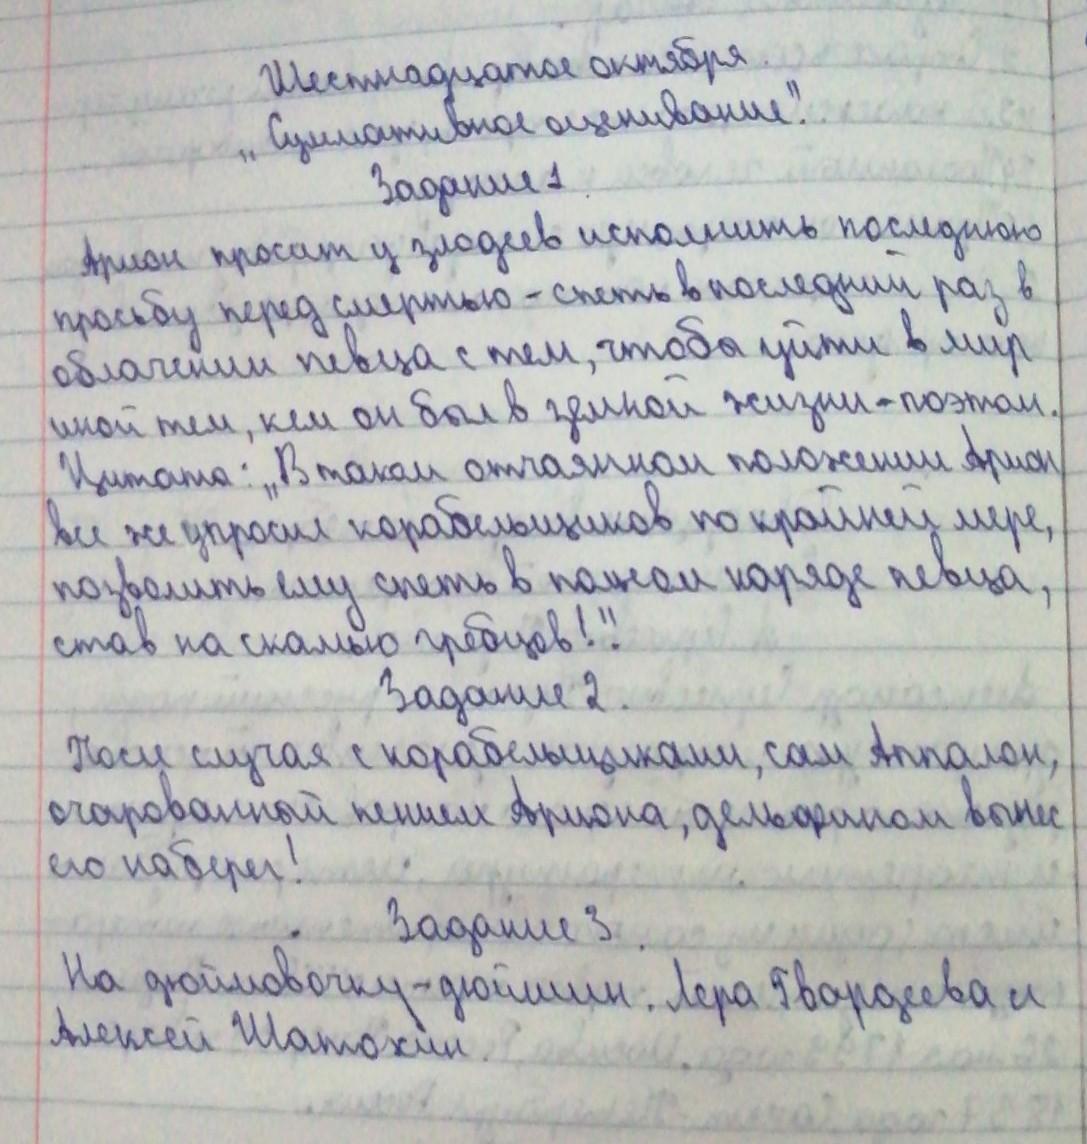 Шестнадцатое октября.
„Суммативное оценивание".
Задание 1
Арион просит у злодеев исполнить последнюю
просьбу перед смертью - спеть в последний раз в
облачении певца с тем, чтобы уйти в мир
иной тем, кем он был в земной жизни - поэтом.
Цитата: „В таком отчаянном положении Арион
все же упросил корабельщиков по крайней мере,
позволить ему спеть в полном наряде певца,
став на скамью гребцов!".
Задание 2.
После случая с корабельщиками, сам Апполон,
очарованный пением Ариона, дельфином вынес
его на берег!
Задание 3.
На дюймовочку - дюймин. Лера Гвардеева и
Алексей Шатохин.